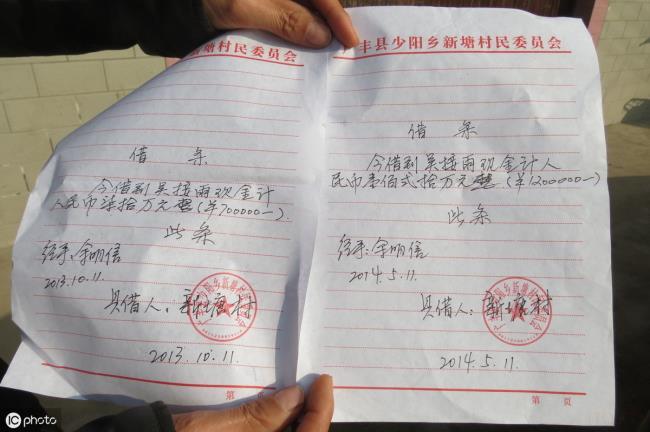 塘村民委员会
借 条
今借到吴接雨现金计
人民币柒拾万元整(¥700000—)
此条
经手:余明信
2013.10.11.
具借人:新塘村
2013.10.11.
第 页
丰县少阳乡新塘村民委员会
借 条
今借到吴接雨现金计人
民币壹佰贰拾万元整(¥1200000—)
此条
经手:余明信
2014.5.11.
具借人:新塘村
2014.5.11.
第 页
iCphoto